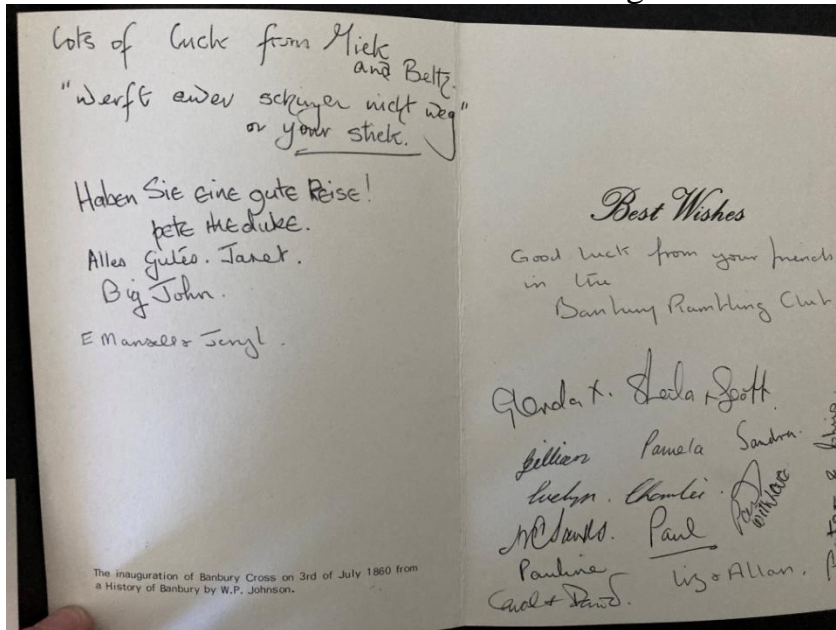 Lots of Luck from Miek
and Beltz.
"Werft euer nicht weg"
or your stick.
Haben Sie eine gute Reise!
pete the duke.
Alles Gutes. Janet.
Big John.
E Mansell & Jenyl.
The inauguration of Banbury Cross on 3rd of July 1860 from
a History of Banbury by W.P. Johnson.
Best Wishes
Good luck from your friends
in the
Banbury Rambling Club
Glenda X. Sheila & Scott
Gillian Pamela Sandra.
Evelyn. Charlie.
with love
Paul
Pauline
Carol & David. Liz & Allan.